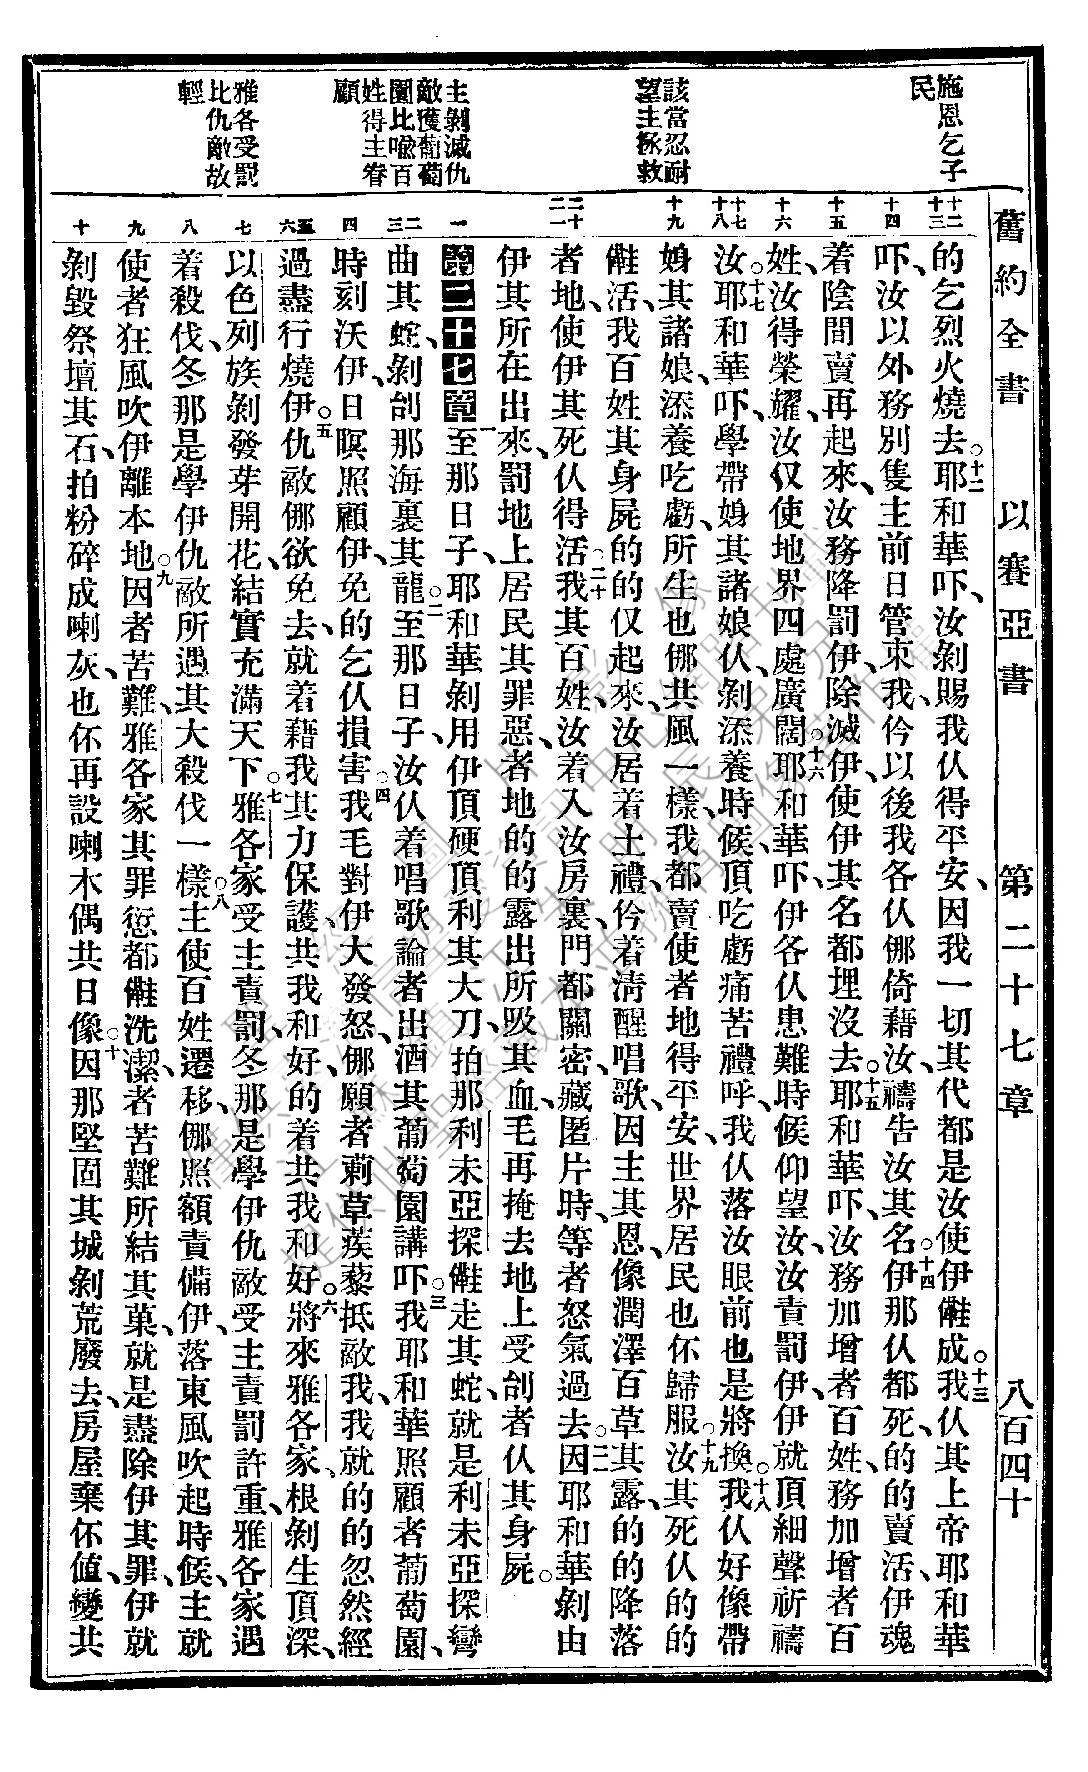 舊約全書 以賽亞書 第二十七章 八百四十
施恩乞子
民
該當忍耐
望主拯救
主剝滅仇
敵獲葡萄
園比喩百
姓得主眷
顧
雅各受罰
比仇敵故
輕
十二 十三
的乞烈火燒去。十二耶和華吓、汝剝賜我仈得平安、因我一切其代都是汝使伊𠆧成。十三我仈其上帝耶和華
十四
吓、汝以外務別隻主前日管束我仱以後我各仈㑚倚藉汝、禱告汝其名。十四伊那仈都死、的的賣活、伊魂
十五
着陰間賣再起來、汝務降罰伊、除滅伊、使伊其名都埋沒去。十五耶和華吓、汝務加增者百姓、務加增者百
十六
姓、汝得榮耀、汝仅使地界四處廣闊。十六耶和華吓、伊各仈患難時候仰望汝、汝責罰伊、伊就頂細聲祈禱
十七 十八
汝。十七耶和華吓、學帶㛛其諸娘仈、剝添養時候、頂吃虧痛苦禮呼、我仈落汝眼前也是將換。十八我仈好像帶
十九
㛛其諸娘、添養吃虧、所生也㑚共風一樣、我都賣使者地得平安、世界居民也伓歸服。十九汝其死仈的的
𠆧活、我百姓其身屍的的仅起來、汝居着土禮、仱着淸醒唱歌、因主其恩、像潤澤百草其露、的的降落
二十 二一
者地、使伊其死仈得活。二十我其百姓、汝着入汝房裏、門都關密、藏匿片時、等者怒氣過去。二一因耶和華剝由
伊其所在出來、罰地上居民其罪惡、者地的的露出所吸其血、毛再掩去地上受刣者仈其身屍。
一
第二十七章 一至那日子、耶和華剝用伊頂硬頂利其大刀、拍那利未亞探𠆧走其蛇、就是利未亞探彎
二 三
曲其蛇、剝刣那海裏其龍。二至那日子、汝仈着唱歌論者出酒其葡萄園講。三吓我耶和華照顧者葡萄園、
四
時刻沃伊、日暝照顧伊、免的乞仈損害。四我毛對伊大發怒、㑚願者莿草蒺藜抵敵我、我就的的忽然經
五 六
過盡行燒伊。五仇敵㑚欲免去、就着藉我其力保護、共我和好、的着共我和好。六將來雅各家、根剝生頂深、
七
以色列族剝發芽開花、結實充滿天下。七雅各家受主責罰、冬那是學伊仇敵受主責罰許重、雅各家遇
八
着殺伐、冬那是學伊仇敵所遇其大殺伐一樣。八主使百姓遷移、㑚照額責備伊、落東風吹起時候、主就
九
使者狂風吹伊離本地。九因者苦難、雅各家其罪愆都𠆧洗潔、者苦難所結其菓、就是盡除伊其罪、伊就
十
剝毀祭壇其石、拍粉碎成喇灰、也伓再設喇木偶共日像。十因那堅固其城剝荒廢去、房屋棄伓値、變共